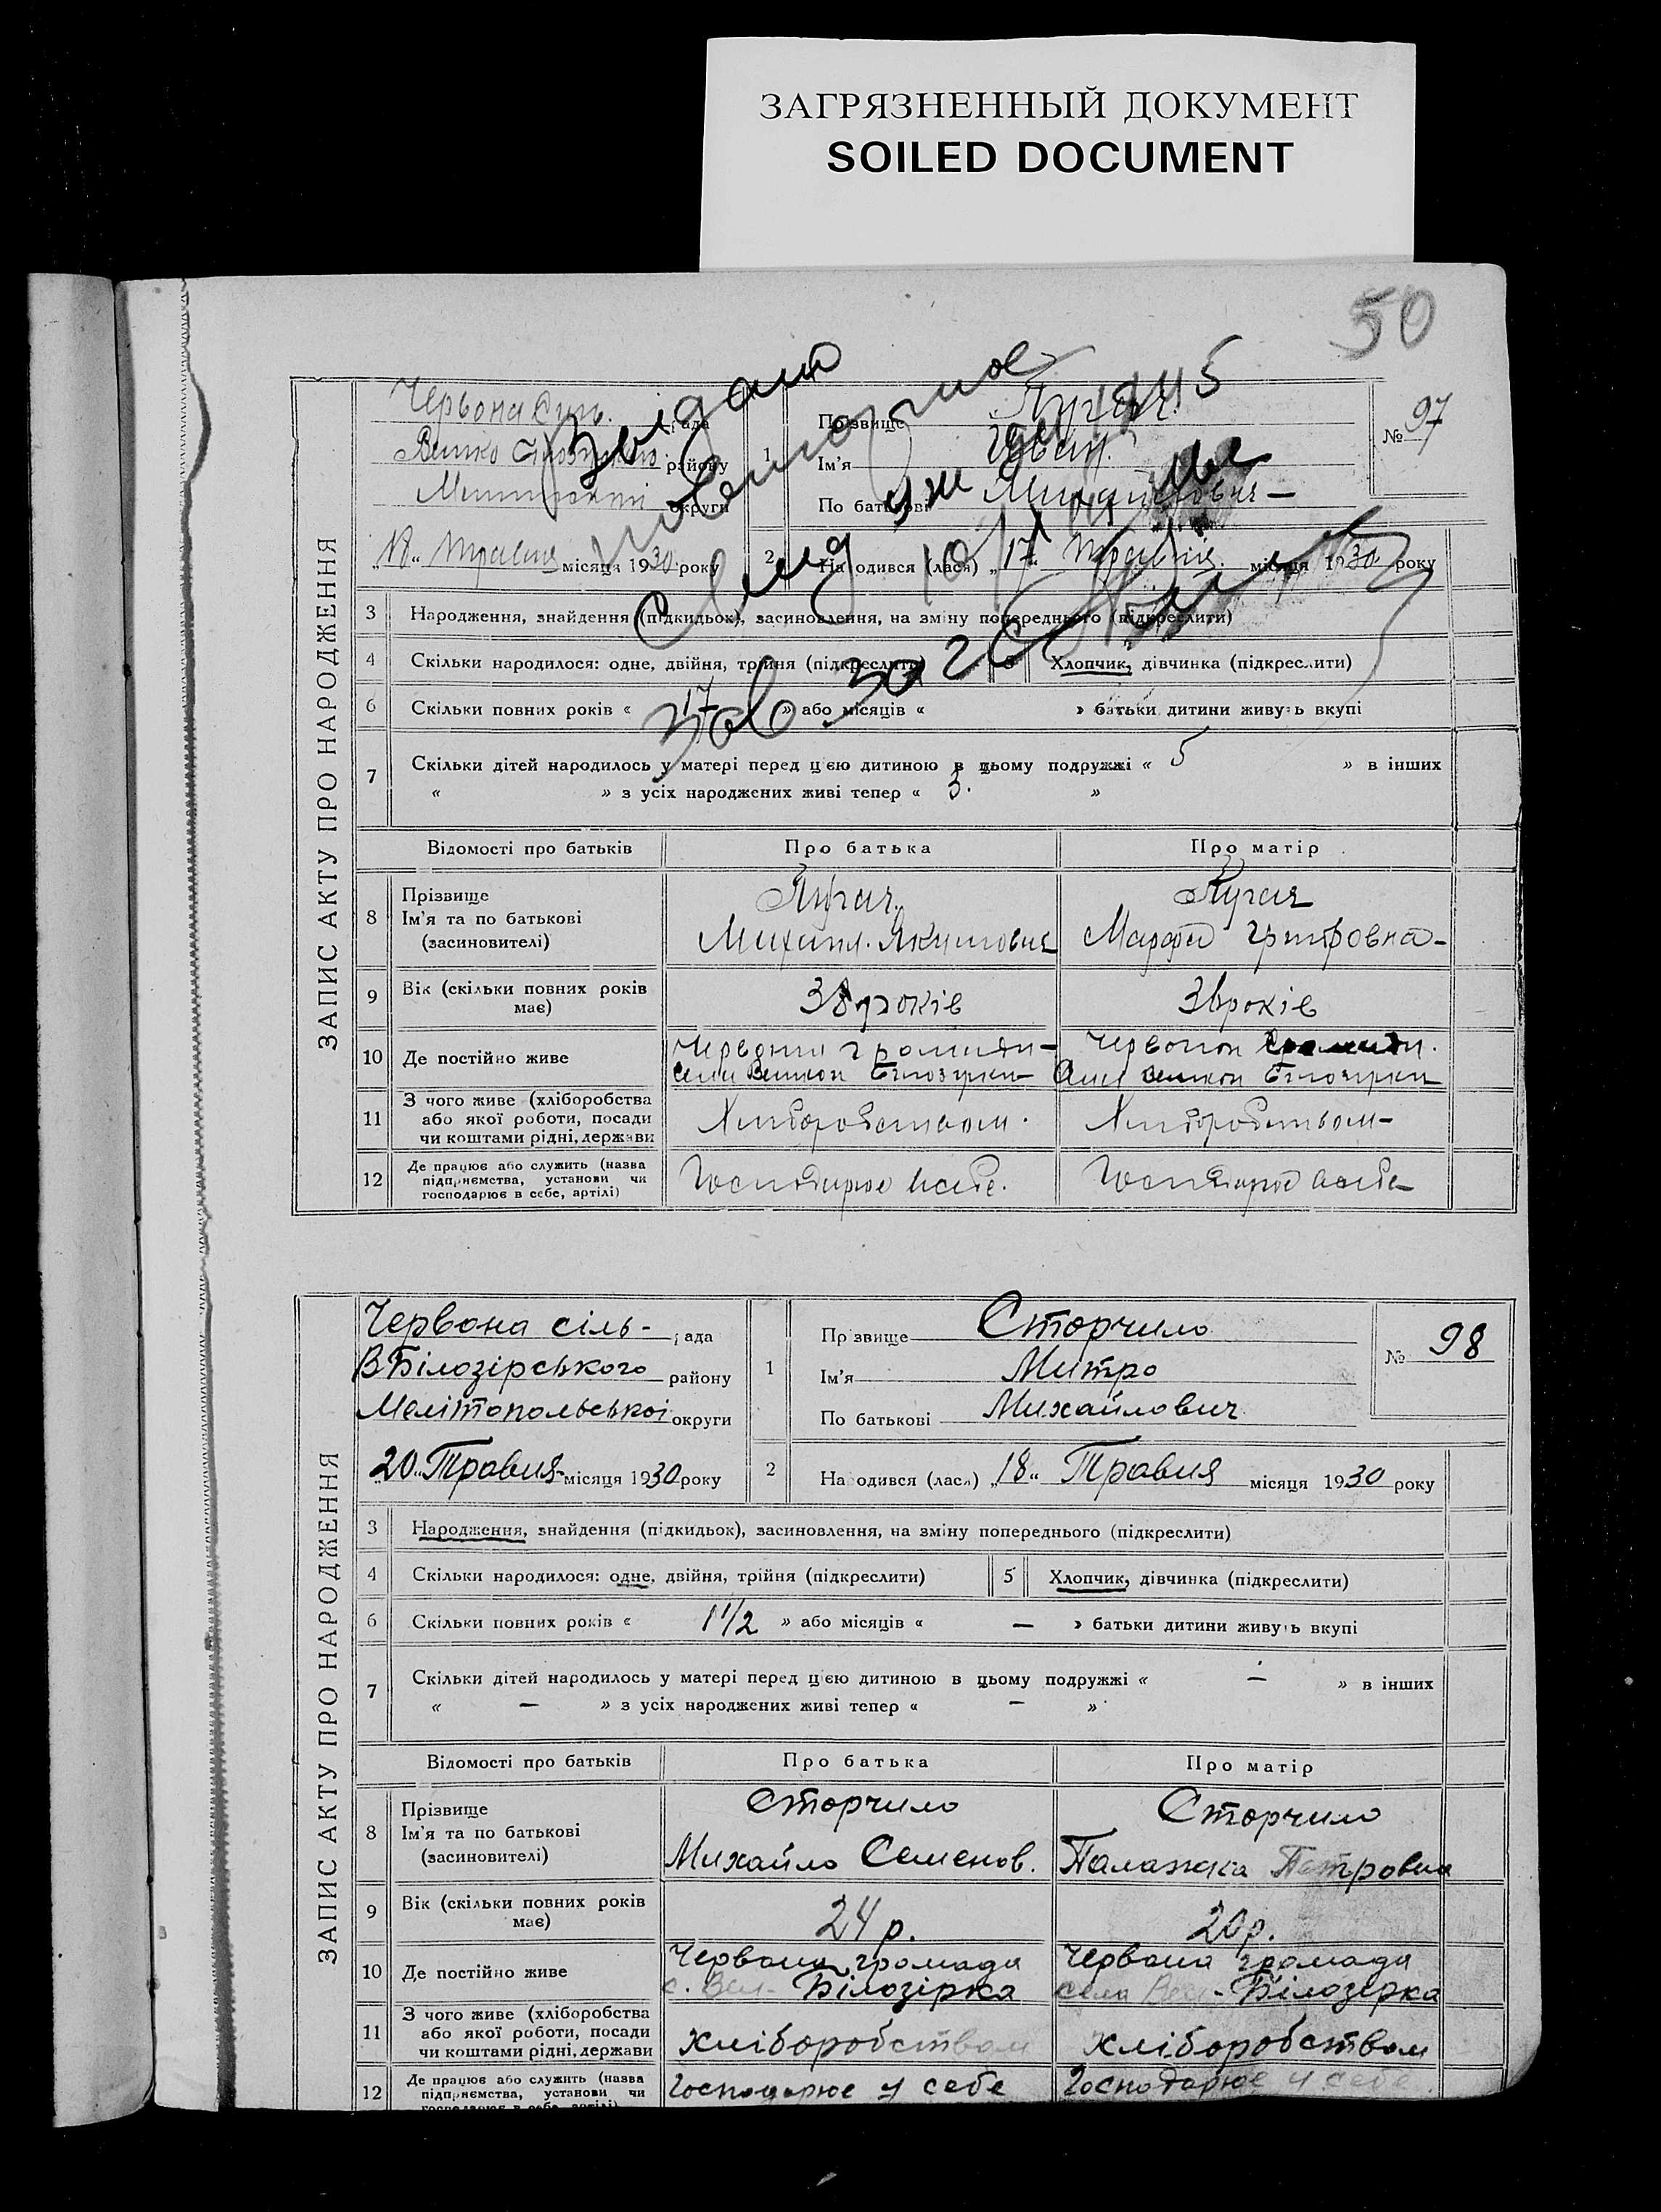 ЗАГРЯЗНЕННЫЙ ДОКУМЕНТ
SOILED DOCUMENT
50
ЗАПИС АКТУ ПРО НАРОДЖЕННЯ
Червона Сіль. рада
району
округи
18 Травня місяця 1930 року
Выдано
повторное
1
Прізвище
Ім'я
По батькові Михайлович
№ 97
2 Народився (лася) „17" Травня місяця 1930 року
3 Народження, знайдення (підкидьок), засиновлення, на зміну попереднього (підкреслити)
4 Скільки народилося: одне, двійня, трійня (підкреслити) 5 Хлопчик, дівчинка (підкреслити)
6 Скільки повних років « 17 » або місяців « » батьки дитини живуть вкупі
7 Скільки дітей народилось у матері перед цією дитиною в цьому подружжі « 5 » в інших
« » з усіх народжених живі тепер « 3. »
Відомості про батьків Про батька Про матір
8 Прізвище
Ім'я та по батькові
(засиновителі)
Михайло Якимович
Марфа
9 Вік (скільки повних років має) 38 років 36 років
10 Де постійно живе
Червоная громади
села Великой Білозирки
Червоной громади.
села Великой Білозирки
11 З чого живе (хліборобства або якої роботи, посади чи коштами рідні, держави
Хліборобством.
Хліборобством
12 Де працює або служить (назва підприємства, установи чи господарює в себе, артілі)
Господарює у себе.
Господарює у себе
ЗАПИС АКТУ ПРО НАРОДЖЕННЯ
Червона сіль- рада
В Білозірського району
Мелітопольської округи
„20" Травня місяця 1930 року
1
Прізвище Сторчило
Ім'я Митро
По батькові Михайлович
№ 98
2 Народився (лася) „18" Травня місяця 1930 року
3 Народження, знайдення (підкидьок), засиновлення, на зміну попереднього (підкреслити)
4 Скільки народилося: одне, двійня, трійня (підкреслити) 5 Хлопчик, дівчинка (підкреслити)
6 Скільки повних років « 1 1/2 » або місяців « — » батьки дитини живуть вкупі
7 Скільки дітей народилось у матері перед цією дитиною в цьому подружжі « — » в інших
« — » з усіх народжених живі тепер « — »
Відомості про батьків Про батька Про матір
8 Прізвище
Ім'я та по батькові
(засиновителі)
Сторчило
Михайло Семенов.
Сторчило
Палажка Петровна
9 Вік (скільки повних років має) 24 р. 20 р.
10 Де постійно живе
Червона громада
с. Вел- Білозірка
Червона громада
села Вел- Білозерка
11 З чого живе (хліборобства або якої роботи, посади чи коштами рідні, держави
Хліборобством
Хліборобством
12 Де працює або служить (назва підприємства, установи чи господарює в себе, артілі)
Господарює у себе
Господарює у себе.